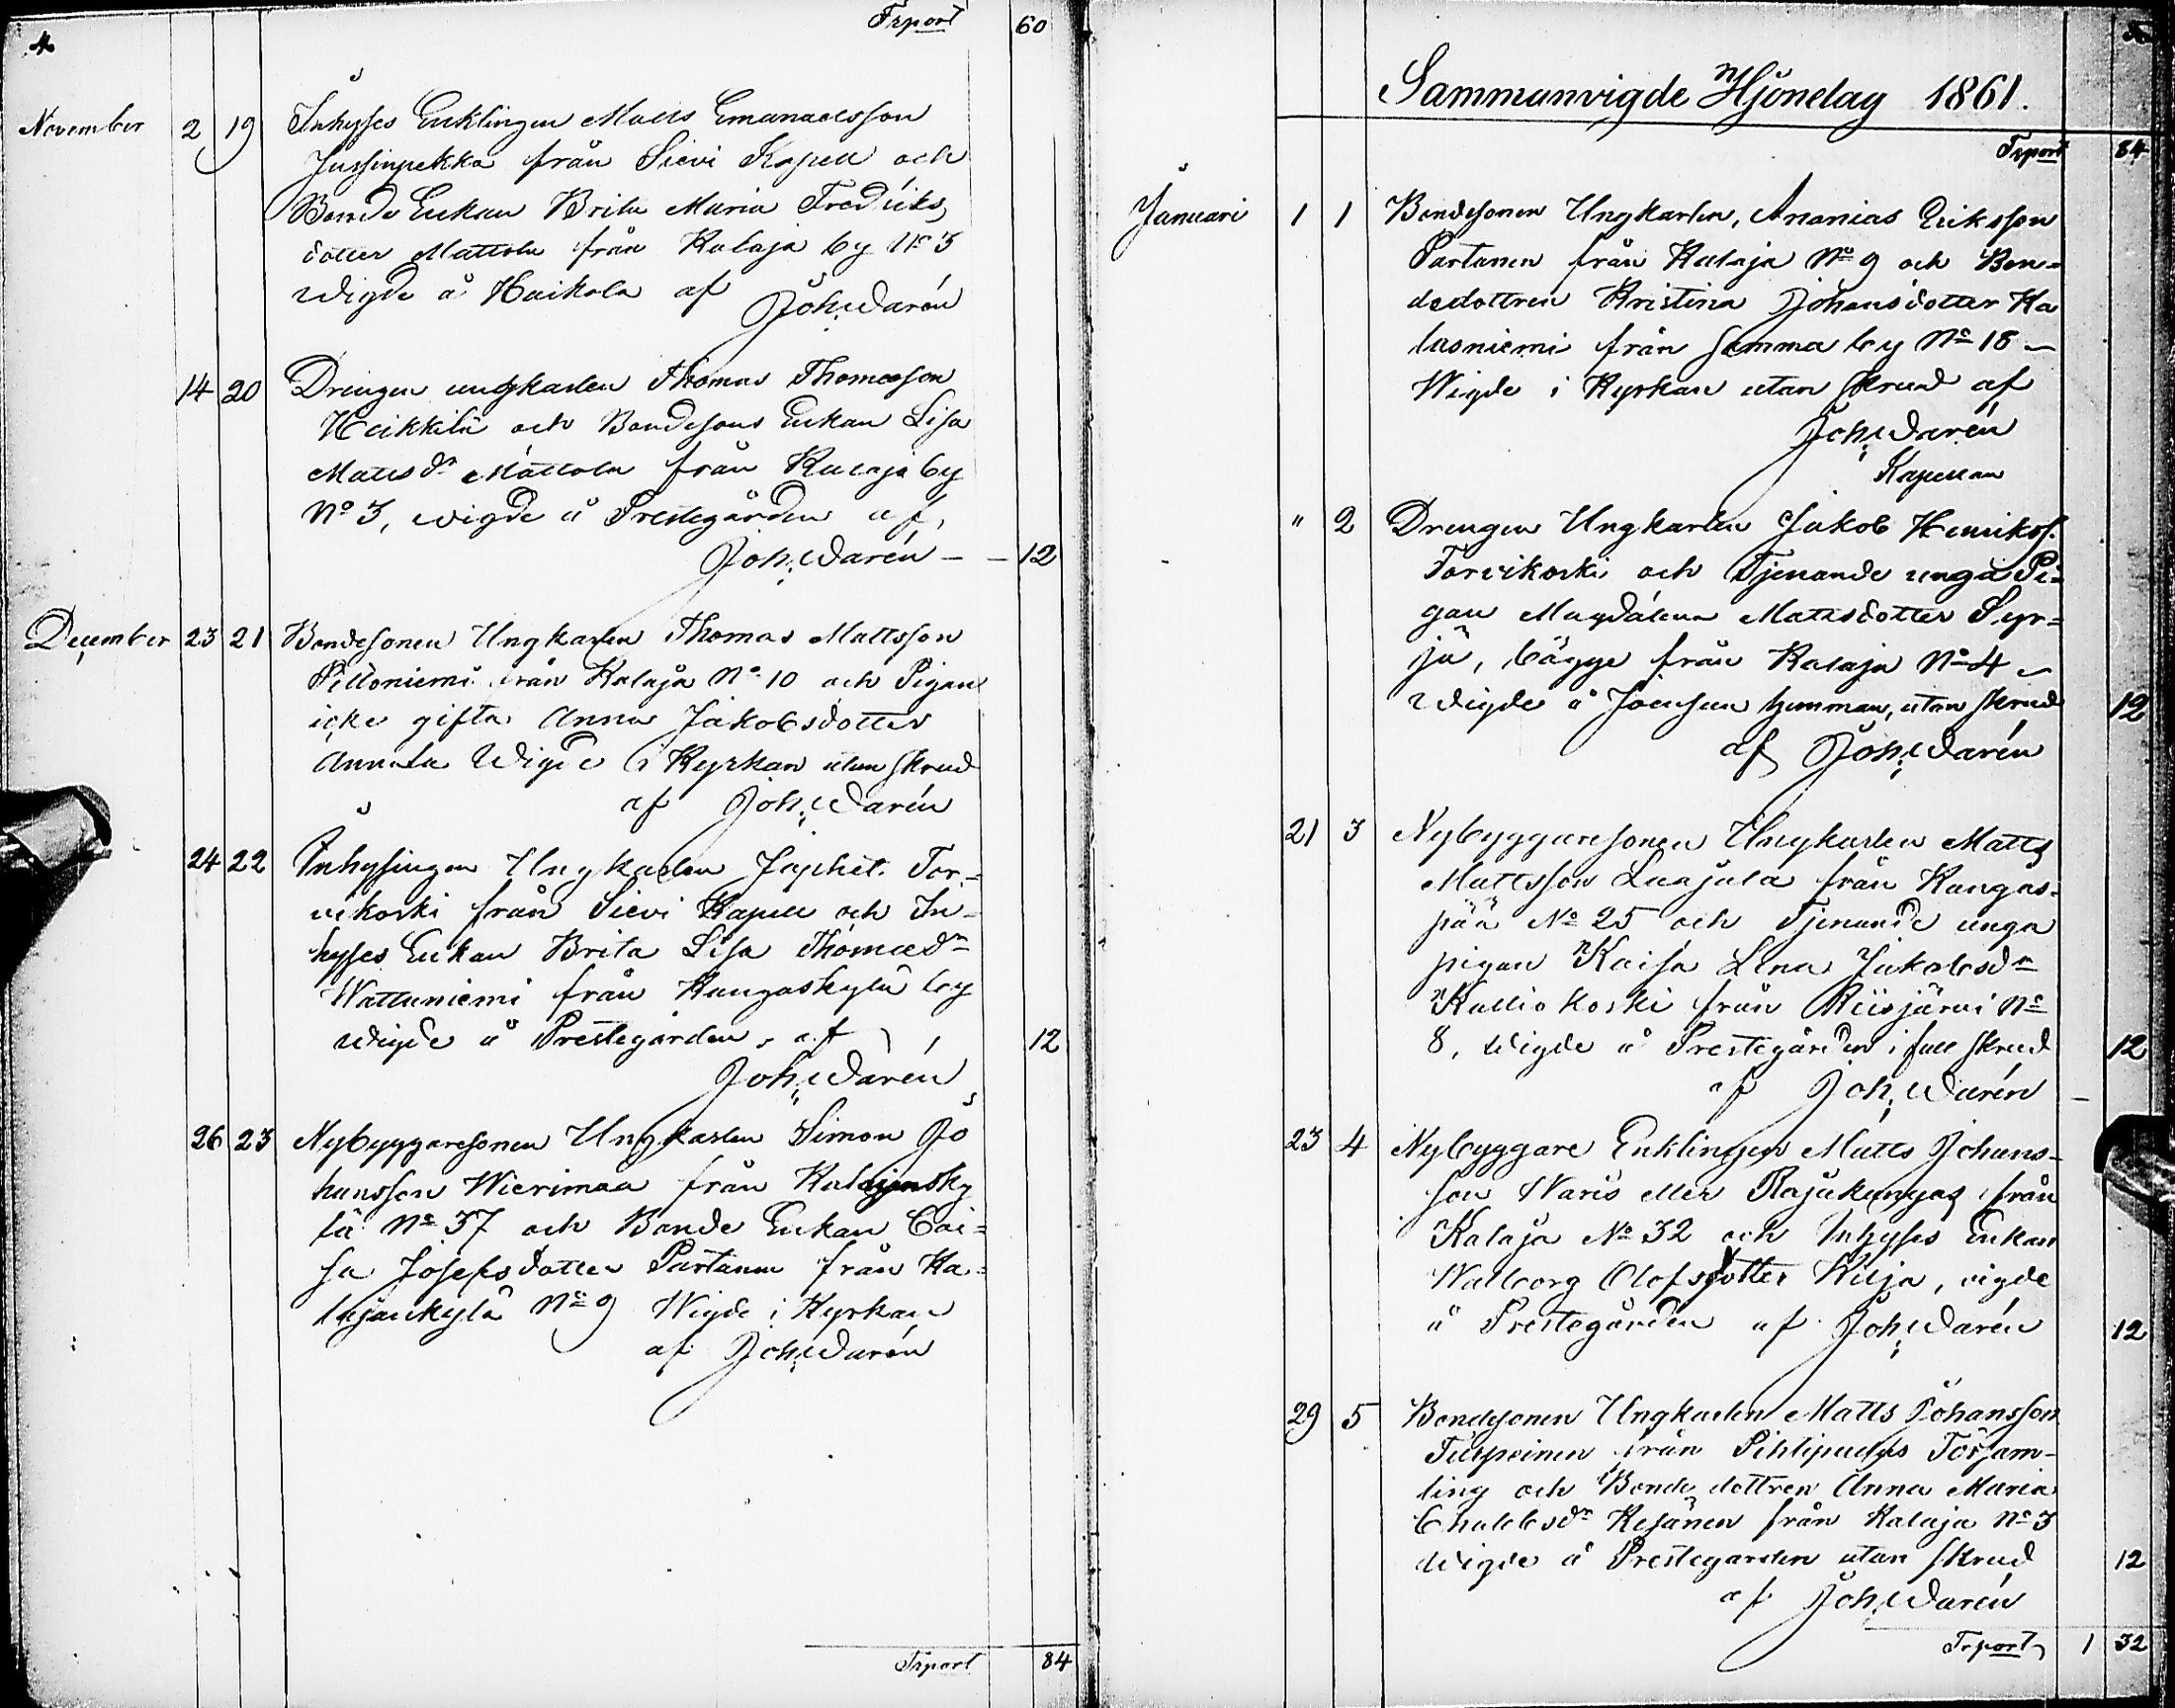 4
Trport 60
November 2 19 Inhyses Enklingen Matts Emanuelsson
Jussinpekka från Sievi Kapell och
Bonde Enkan Brita Maria Fredriks
dotter Mattola från Kalaja by No 3
wigde å Haikola af
Joh: Warén
14 20 Drengen ungkarlen Thomas Thomasson
Heikkilä och Bondesons Enkan Lisa
Mattsdr Mattola från Kalaja by
No 3, wigde å Prestegården af,
Joh: Warén — 12
December 23 21 Bondesonen Ungkarlen Thomas Mattsson
Pitloniemi från Kalaja No 10 och Pigan
icke gifta Anna Jakobsdotter
Annala Wigde i Kyrkan utan skrud
af Joh: Warén
24 22 Inhysingen Ungkarlen Japhet. Tor-
vikoski från Sievi Kapell och In-
hyses Enkan Brita Lisa Thomædr
Wattuniemi från Kangaskylä by
wigde å Prestegården, af 12
Joh: Warén
26 23 Nybyggaresonen Ungkarlen Simon Jo
hansson Wierimaa från Kalajansky
lä No 37 och Bonde Enkan Cai-
sa Josefsdotter Partanen från Ka-
lajankylä No 9 Wigde i Kyrkan
af Joh: Warén
Trport 84
Sammanvigde Hjonelag 1861.
Trport 84
Januari 1 1 Bondesonen Ungkarlen, Ananias Eriksson
Partanen från Kalaja No 9 och Bon-
dedottren Kristina Johansdotter Ka
lasniemi från samma by No 18 —
Wigde i Kyrkan utan skrud af
Joh: Warén
Kapellan
" 2 Drengen Ungkarlen Jakob Henrikss.
Torvikoski och Tjenande unga Pi-
gan Magdalena Mattsdotter Syr-
jä, bägge från Kalaja No 4
Wigde å Joensuu hemman, utan skrud 12
af Joh: Warén
21 3 Nybyggaresonen Ungkarlen Matts
Mattsson Luajala från Kangas-
pää No 25 och Tjenande unga
pigan Kaisa Lena Jakobsdr
Kalliokoski från Riisjärvi No
8, wigde å Prestegården i full skrud 12
af Joh: Warén
23 4 Nybyggare Enklingen Matts Johans-
son Waris eller Rajakangas från
Kalaja No 32 och Inhyses Enkan
Walborg Olofsdotter Kilja, vigde
å Prestegården af Joh: Warén 12
29 5 Bondesonen Ungkarlen Matts Johansson
från Pihtipudas Försam-
ling och Bonde dottren Anna Maria
Kesänen från Kalaja No 3
wigde å Prestegarden utan skrud 12
af Joh: Warén
Trport 1 32